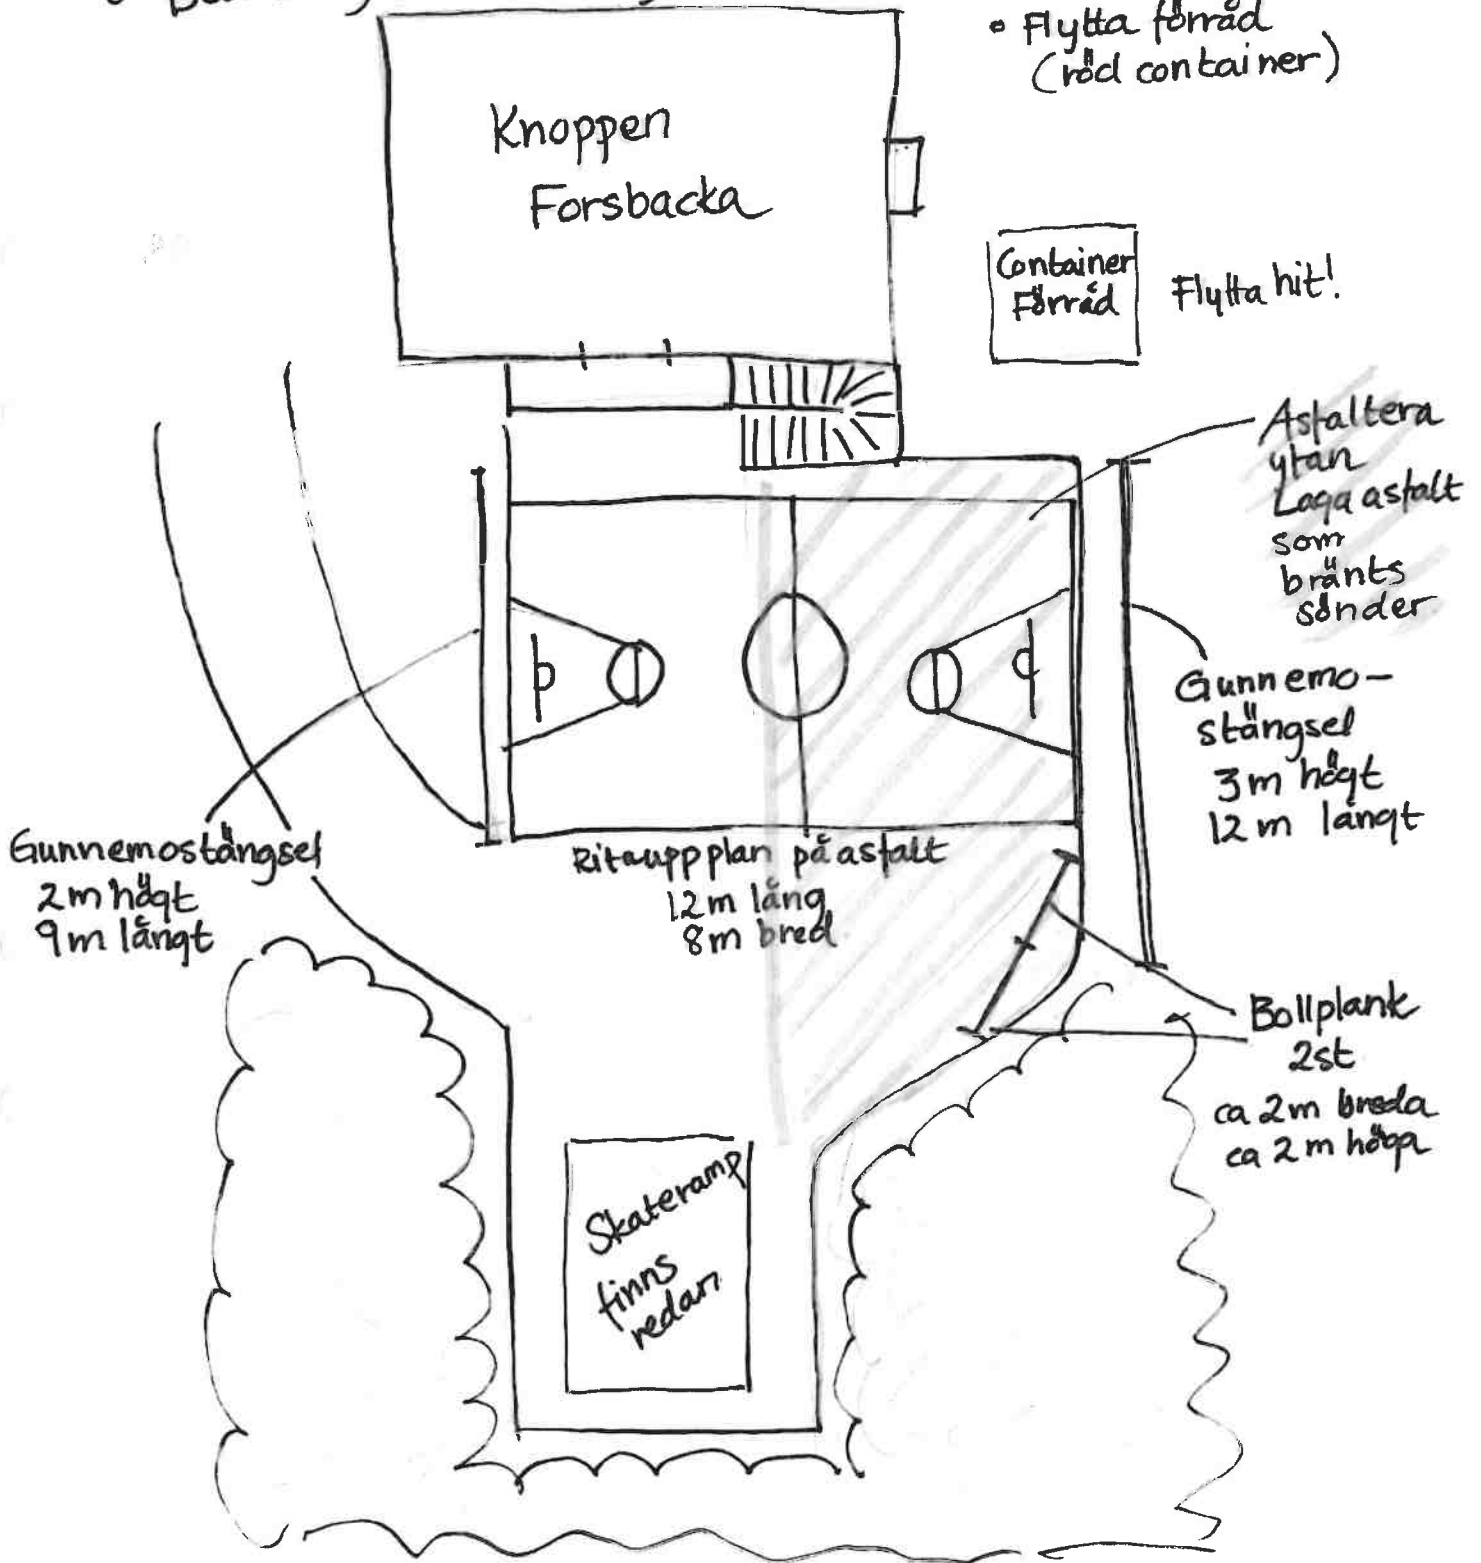 • Flytta förråd
(röd container)
Knoppen
Forsbacka
Container
Förråd
Flytta hit!
Asfaltera
ytan
Laga asfalt
som
bränts
sönder
Gunnemo-
stängsel
3m högt
12 m långt
Gunnemostängsel
2m högt
9m långt
Rita upp plan på asfalt
12m lång
8m bred
Bollplank
2st
ca 2m breda
ca 2m höga
Skateramp
finns
redan